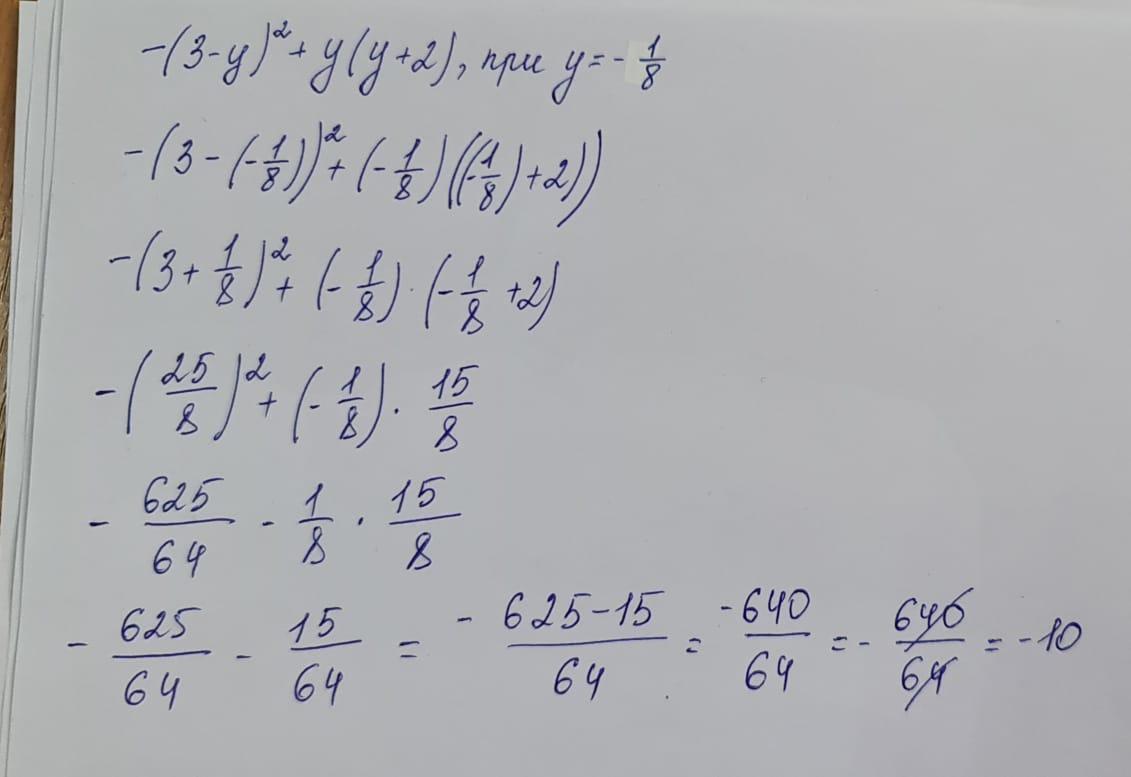 -(3-y)²+y(y+2), при y=-1/8
-(3-(-1/8))²+(-1/8)((-1/8)+2))
-(3+1/8)²+(-1/8)·(-1/8+2)
-(25/8)²+(-1/8)·15/8
-625/64-1/8·15/8
-625/64-15/64=-625-15/64=-640/64=-640/64=-10